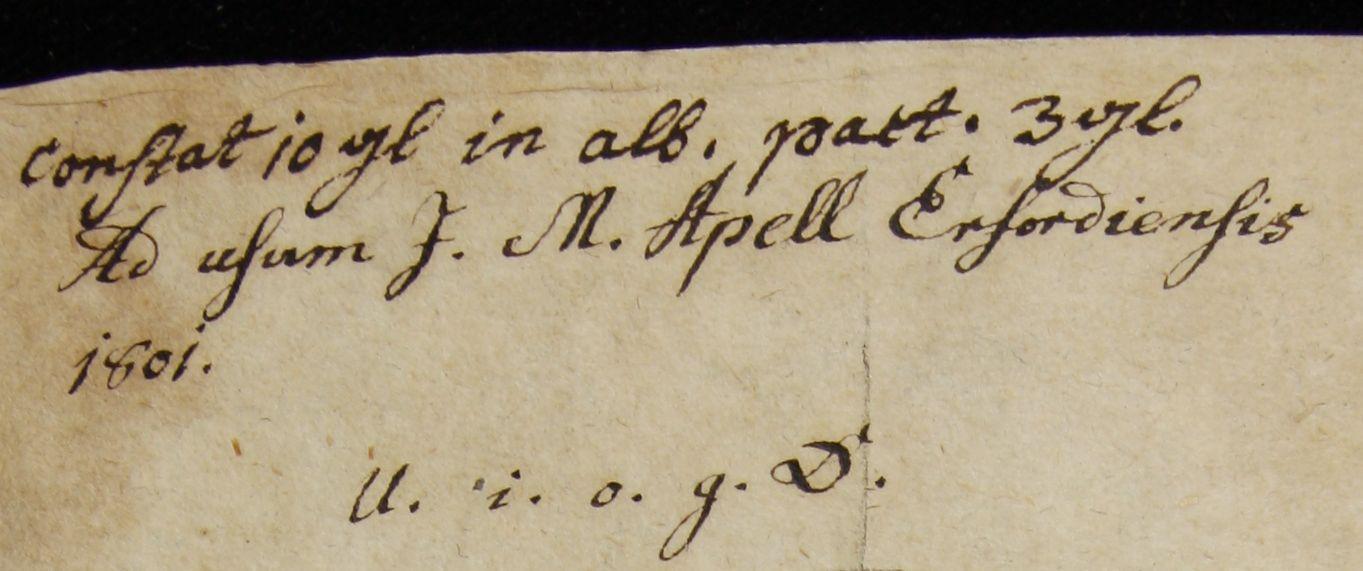 constat 10 gl in alb. pact. 3 gl.
Ad usum J. M. Apell Erfordiensis
1801.
U. i. o. g. D.